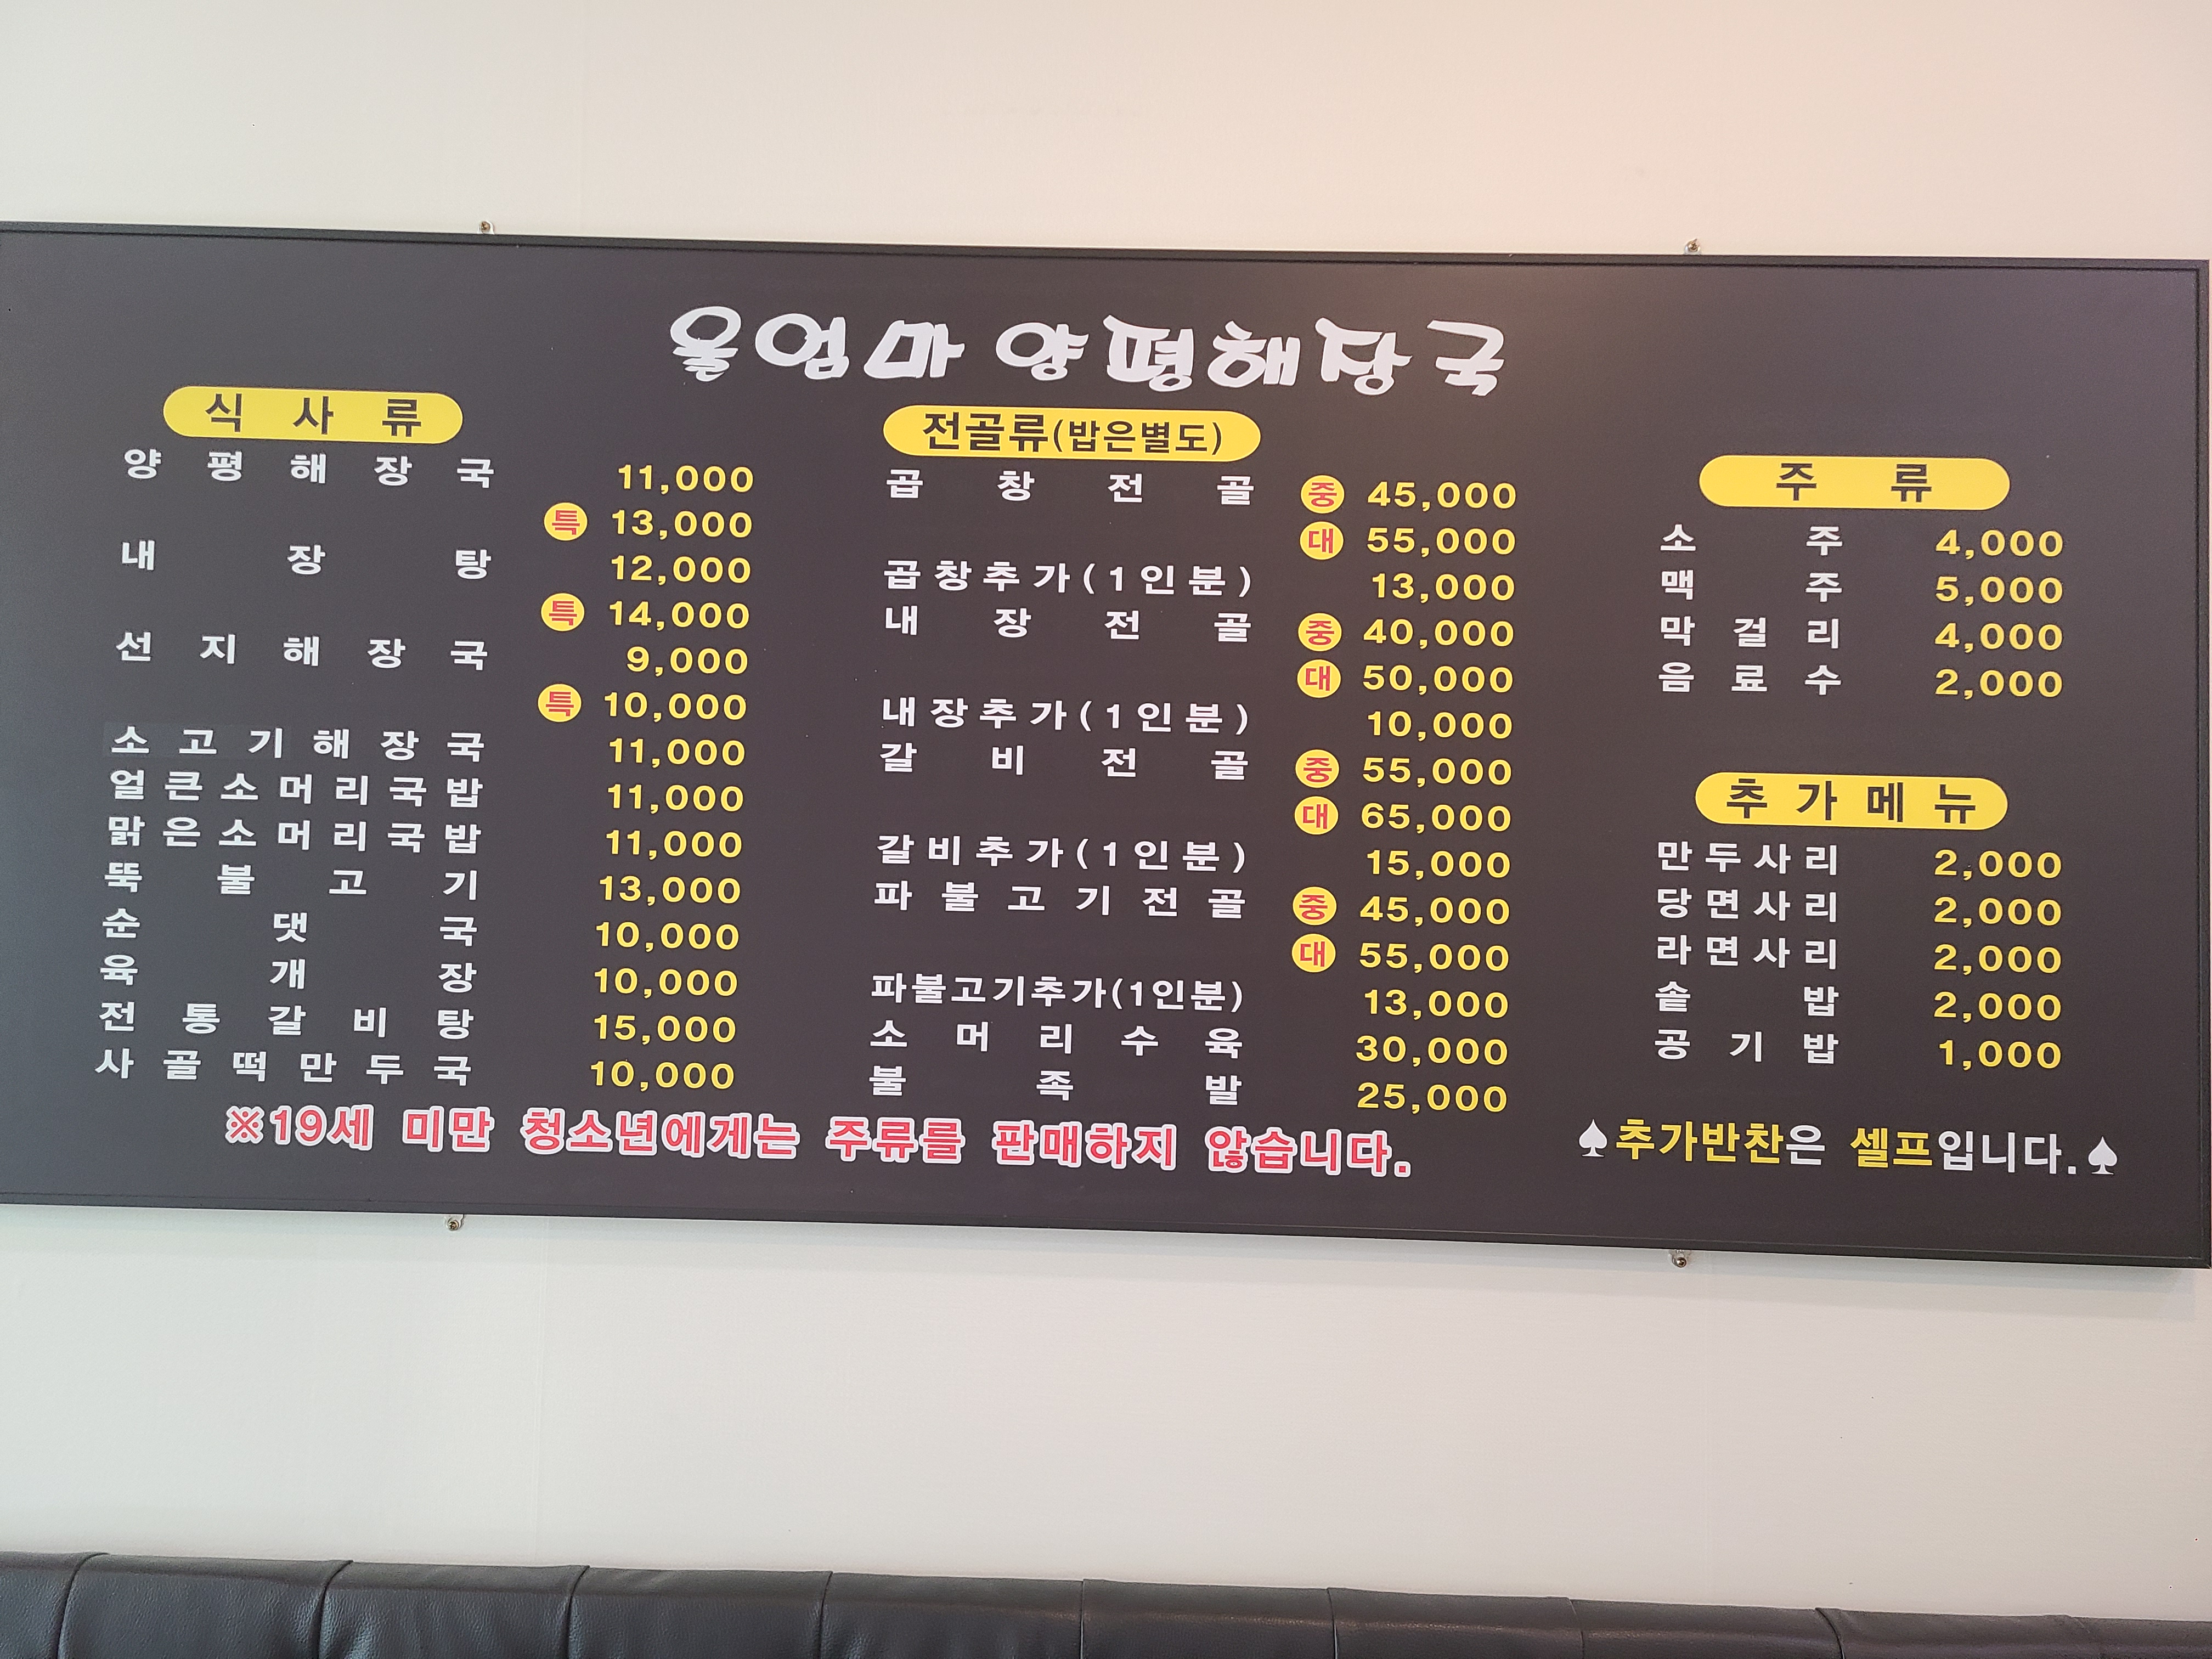 울엄마 양평해장국
식사류
양평해장국 11,000
특 13,000
내장탕 12,000
특 14,000
선지해장국 9,000
특 10,000
소고기해장국 11,000
얼큰소머리국밥 11,000
맑은소머리국밥 11,000
뚝불고기 13,000
순댓국 10,000
육개장 10,000
전통갈비탕 15,000
사골떡만두국 10,000
전골류(밥은별도)
곱창전골 중 45,000
대 55,000
곱창추가(1인분) 13,000
내장전골 중 40,000
대 50,000
내장추가(1인분) 10,000
갈비전골 중 55,000
대 65,000
갈비추가(1인분) 15,000
파불고기전골 중 45,000
대 55,000
파불고기추가(1인분) 13,000
소머리수육 30,000
불족발 25,000
주류
소주 4,000
맥주 5,000
막걸리 4,000
음료수 2,000
추가메뉴
만두사리 2,000
당면사리 2,000
라면사리 2,000
솥밥 2,000
공기밥 1,000
※19세 미만 청소년에게는 주류를 판매하지 않습니다.
♠추가반찬은 셀프입니다.♠